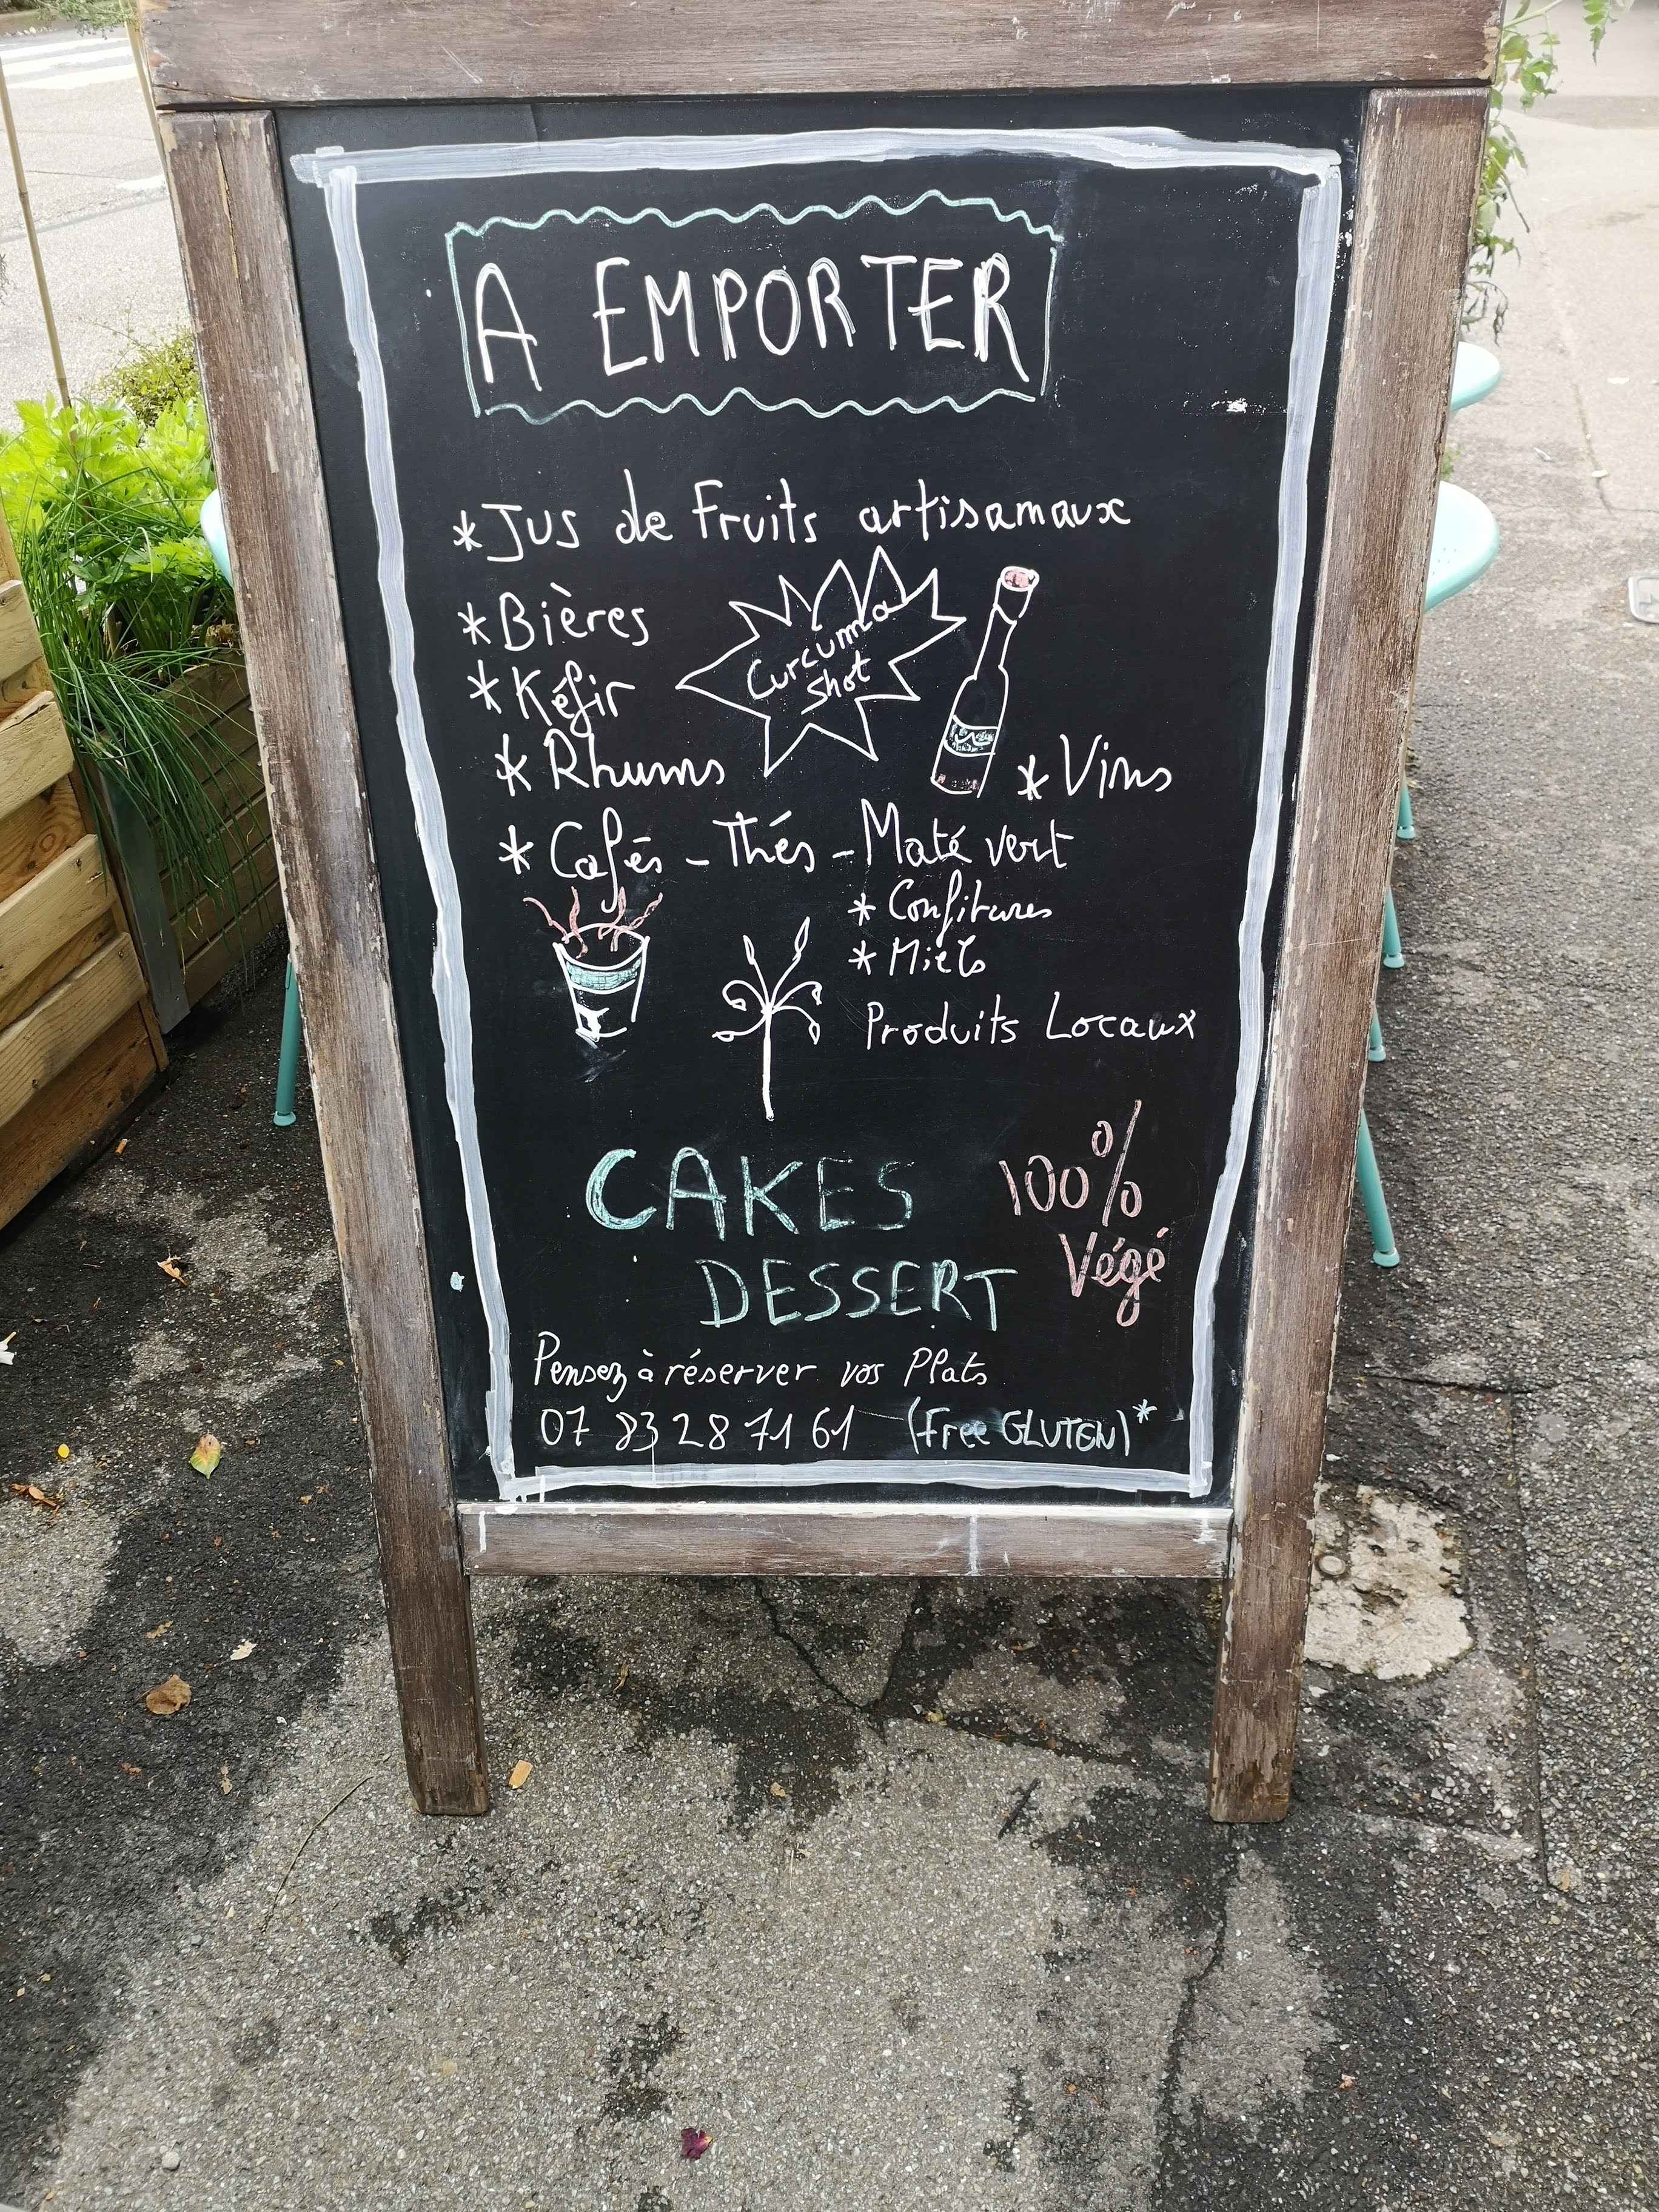 A EMPORTER
*Jus de Fruits artisanaux
*Bières
*Kéfir
Curcuma
shot
*Rhums
*Vins
*Cafés - Thés - Maté vert
*Confitures
*Miels
Produits Locaux
CAKES
DESSERT
100%
Végé
Pensez à réserver vos Plats
07 83 28 71 61 (Free GLUTEN)*